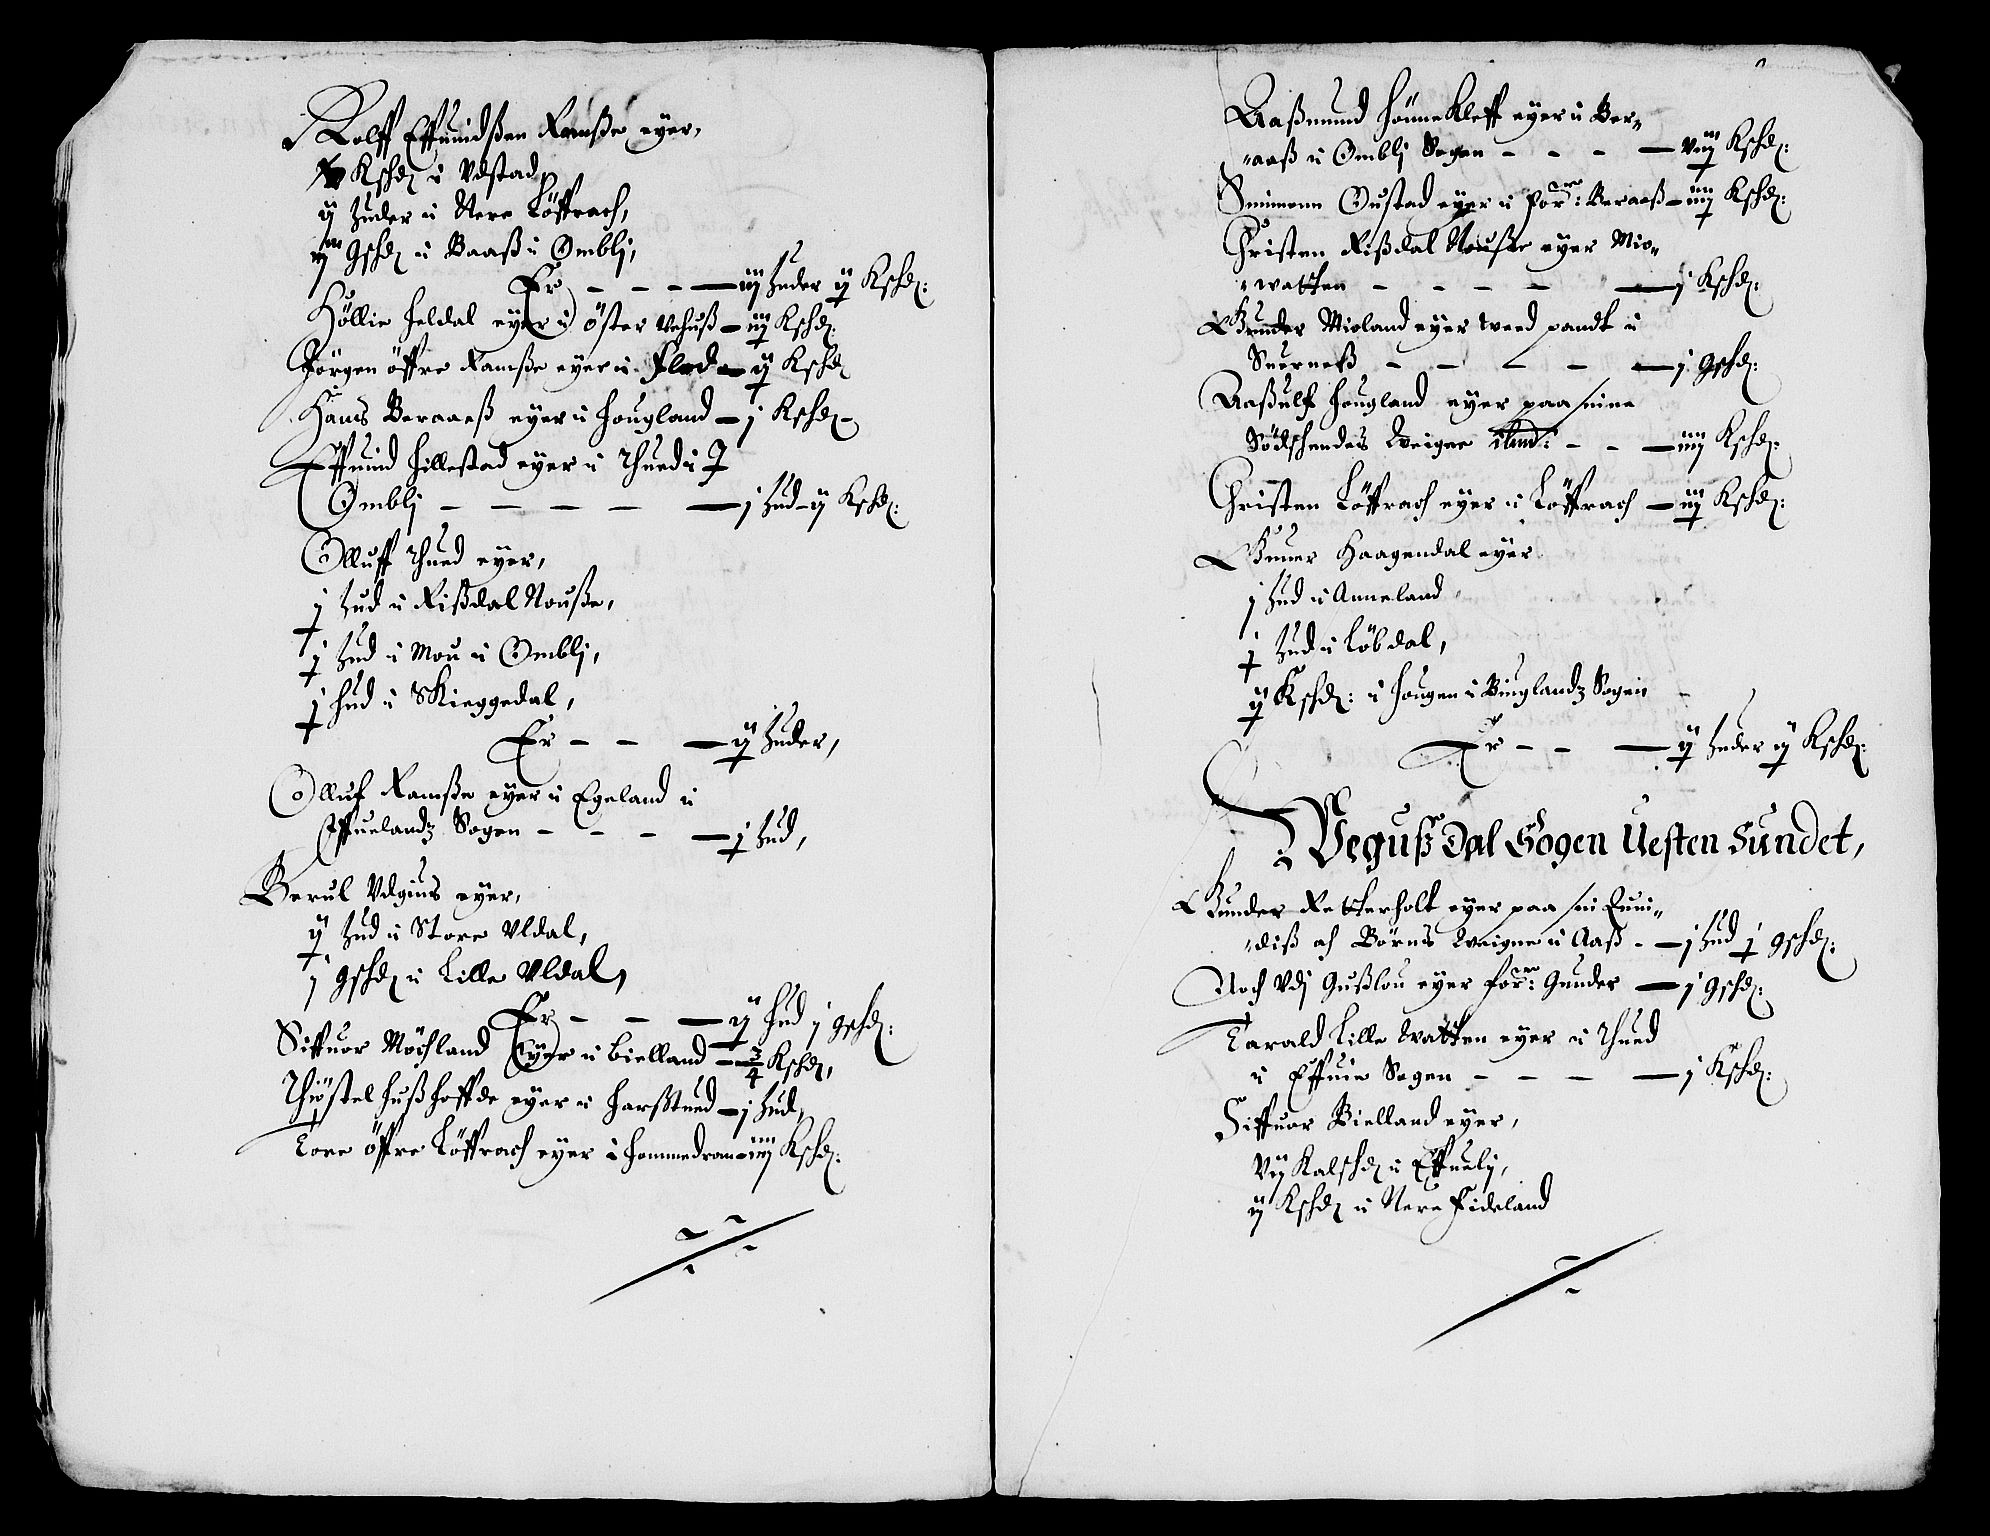 Rolff Effuindßen Ramße eyer,
Kschd i Vdstad
ij huder i Nere Löffrach,
iij gschd i Baaß i Omblj,
Er - - - iij huder ij Kschd:
Höllie Heldal eyer i Öster Vehuß - iiij Kschd:
Jörgen öffre Ramße eyer i Flod - ij Kschd
Hans Beraaeß eyer i Hougland - j Kschd -
Effuind Hillestad eyer i Thued i
Omblj - - - - - j hud - ij Kschd:
Olluff Thued eyer,
j hud i Rißdal Nouße,
j hud i Mou i Omblj,
j hud i Skieggedal,
Er - - - ij huder,
Olluf Ramße eyer i Egeland i
Iffuelandz Sogen - - - - j hud,
Berul Vdgius eyer,
ij hud i Store Vldal,
j gschd i Lille Vldal,
Er - - - ij hud j gschd:
Siffuor Möchland Eyer i Bielland - 3/4 Kschd,
Thiöstel Hußhoffde eyer i Harßtued - j hud,
Tore öffre Löffrach eyer i Hommedram - iiij Kschd:
Aaßmund Hönnekleff eyer i Ber„
„aaß i Omblj Sogen - - - - viij Kschd:
Smimenn Oustad eyer i for:ne Beraaß - iiij Kschd:
Christen Rißdal Nouße eyer Mio„
„watten - - - - - j Kschd:
Gunder Mioland eyer weed pandt i
Suerneß - - - - - j gschd:
Aaßulf Hougland eyer paa sine
Södschendes Weigne ibid: - - - iiij Kschd:
Christen Löffrach eyer i Löffrach - iij Kschd:
Gunner Haagendal eyer
j hud i Anneland
j hud i Löbdal,
ij Kschd: i Hougen i Vinglandz Sogen,
Er - - - ij huder ij Kschd:
Weguß Dal Sogen Uesten Sundet,
Gunder Retterholt eyer paa sin Quin„
„diß och Börns Weigne i Aaß - - j hud j gschd:
Noch Vdj Gußlou eyer for:ne Gunder - j gschd:
Tarald Lille Watten eyer i Thued
i Effuie Sogen - - - - j Kschd:
Siffuor Bielland eyer,
Vij Kalschd i Effuelj,
ij Kschd i Nere Fideland